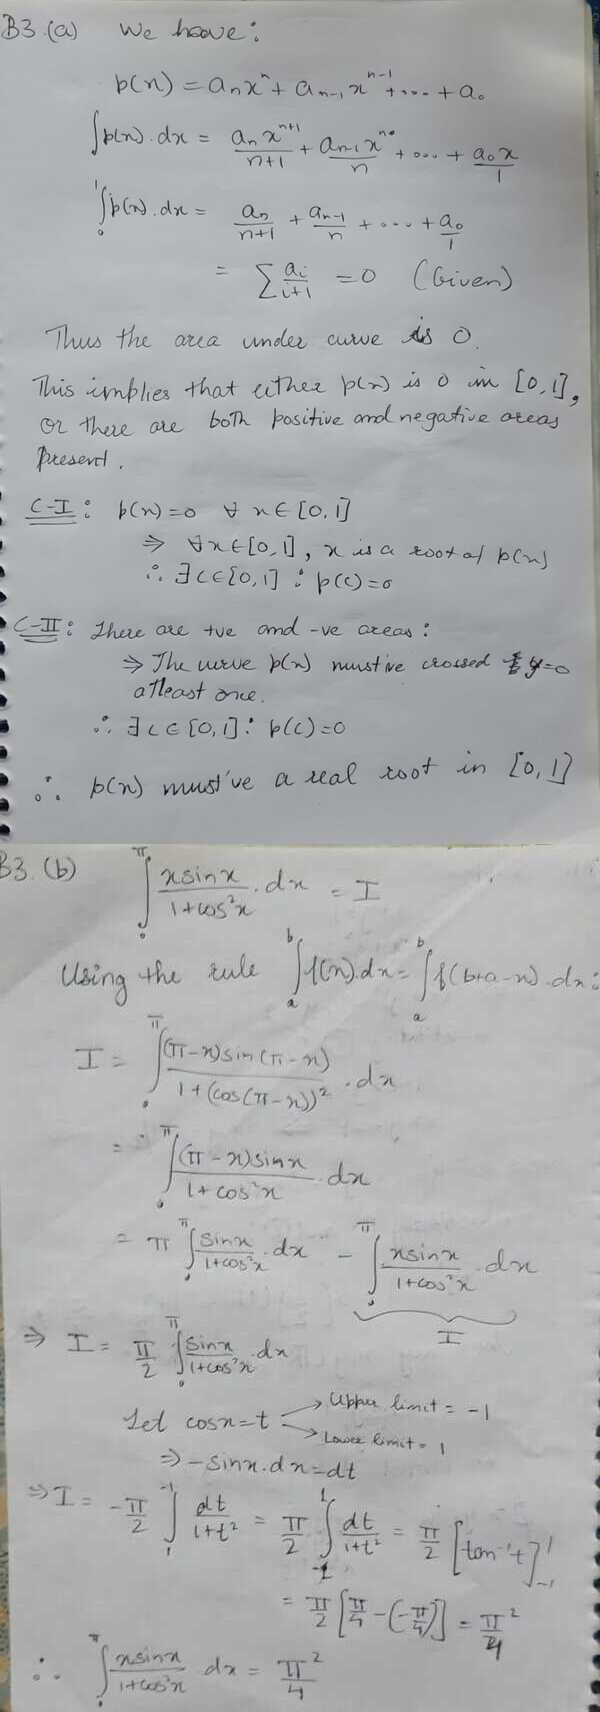 B3.(a) We have:
p(x) = aₙxⁿ + aₙ₋₁xⁿ⁻¹ + .... + a₀
∫p(x).dx = aₙxⁿ⁺¹/n+1 + aₙ₋₁xⁿ/n + ... + a₀x/1
₀∫¹p(x).dx = aₙ/n+1 + aₙ₋₁/n + .... + a₀/1
= ∑ aᵢ/i+1 = 0 (Given)
Thus the area under curve is 0.
This implies that either p(x) is 0 in [0,1],
or there are both positive and negative areas
present.
C-I: p(x)=0 ∀ x∈[0,1]
⇒ ∀x∈[0,1], x is a root of p(x)
∴ ∃c∈[0,1] : p(c)=0
C-II: There are +ve and -ve areas:
⇒ The curve p(x) must've crossed y=0
atleast one.
∴ ∃c∈[0,1] : p(c)=0
∴ p(x) must've a real root in [0,1]
B3.(b) ₀∫^π xsinx/1+cos²x .dx = I
Using the rule ₐ∫ᵇ f(x).dx = ₐ∫ᵇ f(b+a-x).dx :
I = ₀∫^π (π-x)sin(π-x)/1+(cos(π-x))² .dx
= ₀∫^π (π-x)sinx/1+cos²x dx
= π ₀∫^π sinx/1+cos²x .dx - ₀∫^π xsinx/1+cos²x .dx
I
⇒ I = π/2 ₀∫^π sinx/1+cos²x .dx
Let cosx=t → Upper limit = -1
→ Lower limit = 1
⇒ -sinx.dx=dt
⇒ I = -π/2 ₁∫⁻¹ dt/1+t² = π/2 ₋₁∫¹ dt/1+t² = π/2 [tan⁻¹t]₋₁¹
= π/2 [π/4 - (-π/4)] = π²/4
∴ ₀∫^π xsinx/1+cos²x dx = π²/4